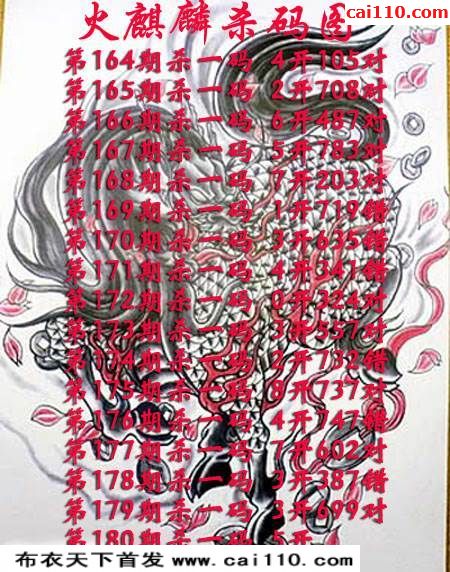 cai110.com
火麒麟杀码图
第164期杀一码 4开105对
第165期杀一码 2开708对
第166期杀一码 6开487对
第167期杀一码 5开783对
第168期杀一码 7开203对
第169期杀一码 1开719错
第170期杀一码 3开635错
第171期杀一码 4开341错
第172期杀一码 0开324对
第173期杀一码 3开557对
第174期杀一码 2开732错
第175期杀一码 8开737对
第176期杀一码 4开747错
第177期杀一码 7开602对
第178期杀一码 3开387错
第179期杀一码 3开699对
第180期杀一码 5开
布衣天下首发 www.cai110.com